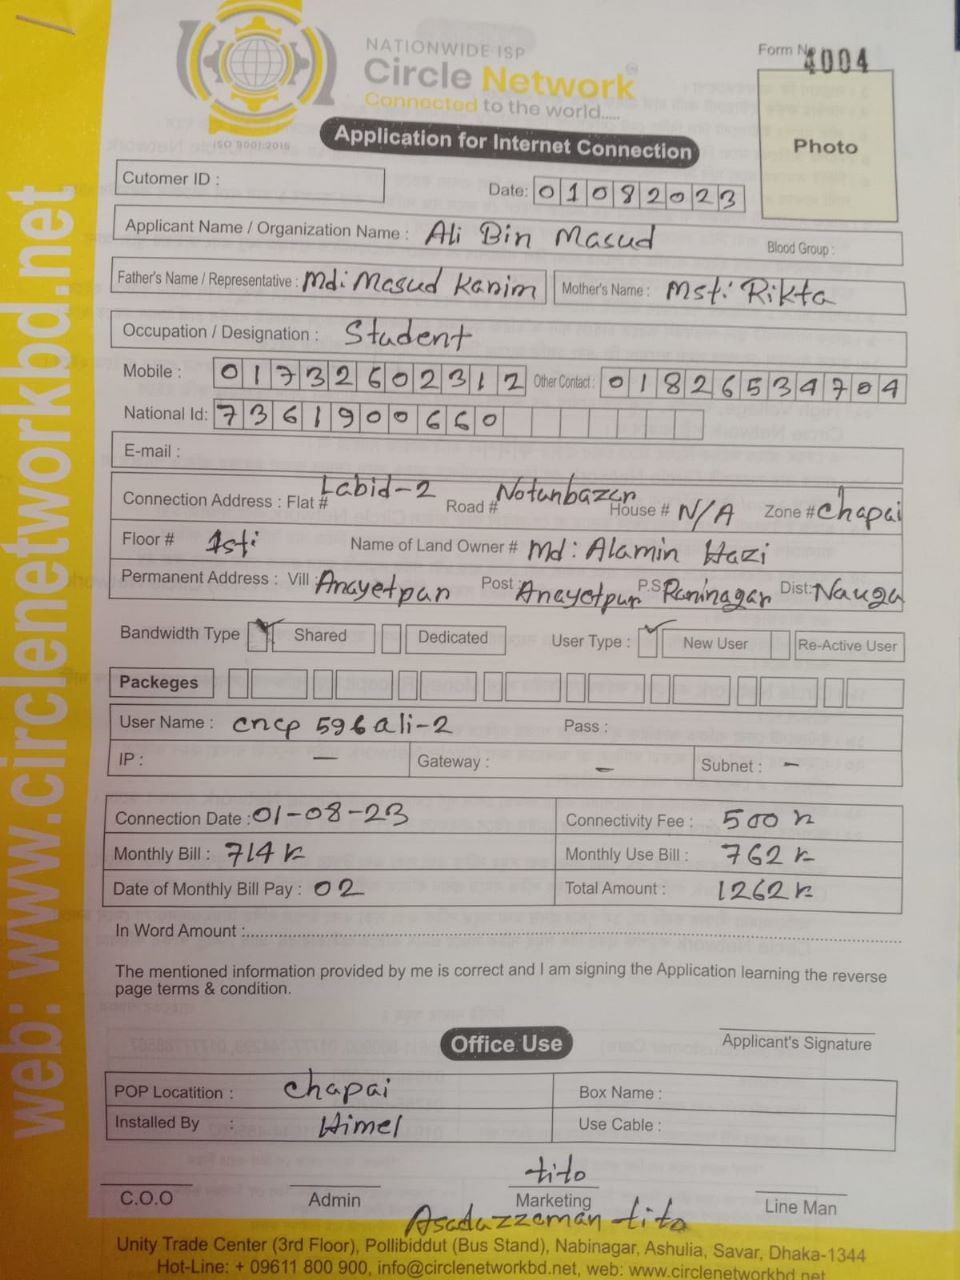 NATIONWIDE ISP
Circle Network
Connected to the world.....
ISO 9001:2015
Form No 4004
Photo
Application for Internet Connection
Cutomer ID :
Date: 01082023
Applicant Name / Organization Name : Ali Bin Masud
Blood Group :
Father's Name / Representative : Md: Masud Karim
Mother's Name : Mst: Rikta
Occupation / Designation : Student
Mobile : 01732602312 Other Contact : 01826534704
National Id: 7361900660
E-mail :
Connection Address : Flat # Labid-2 Road # Notunbazar House # N/A Zone # chapai
Floor # 1st: Name of Land Owner # Md: Alamin Hazi
Permanent Address : Vill : Anayetpur Post : Anayetpur P.S Raninagar Dist: Nauga
Bandwidth Type ✓ Shared Dedicated User Type : ✓ New User Re-Active User
Packeges
User Name : cncp 596ali-2 Pass :
IP : — Gateway : — Subnet : —
Connection Date : 01-08-23 Connectivity Fee : 500
Monthly Bill : 714 Monthly Use Bill : 762
Date of Monthly Bill Pay : 02 Total Amount : 1262
In Word Amount :
The mentioned information provided by me is correct and I am signing the Application learning the reverse
page terms & condition.
Office Use
Applicant's Signature
POP Locatition : chapai Box Name :
Installed By : Himel Use Cable :
tito
C.O.O Admin Marketing Line Man
Asaduzzaman tito
Unity Trade Center (3rd Floor), Pollibiddut (Bus Stand), Nabinagar, Ashulia, Savar, Dhaka-1344
Hot-Line: + 09611 800 900, info@circlenetworkbd.net, web: www.circlenetworkbd.net
web: www.circlenetworkbd.net